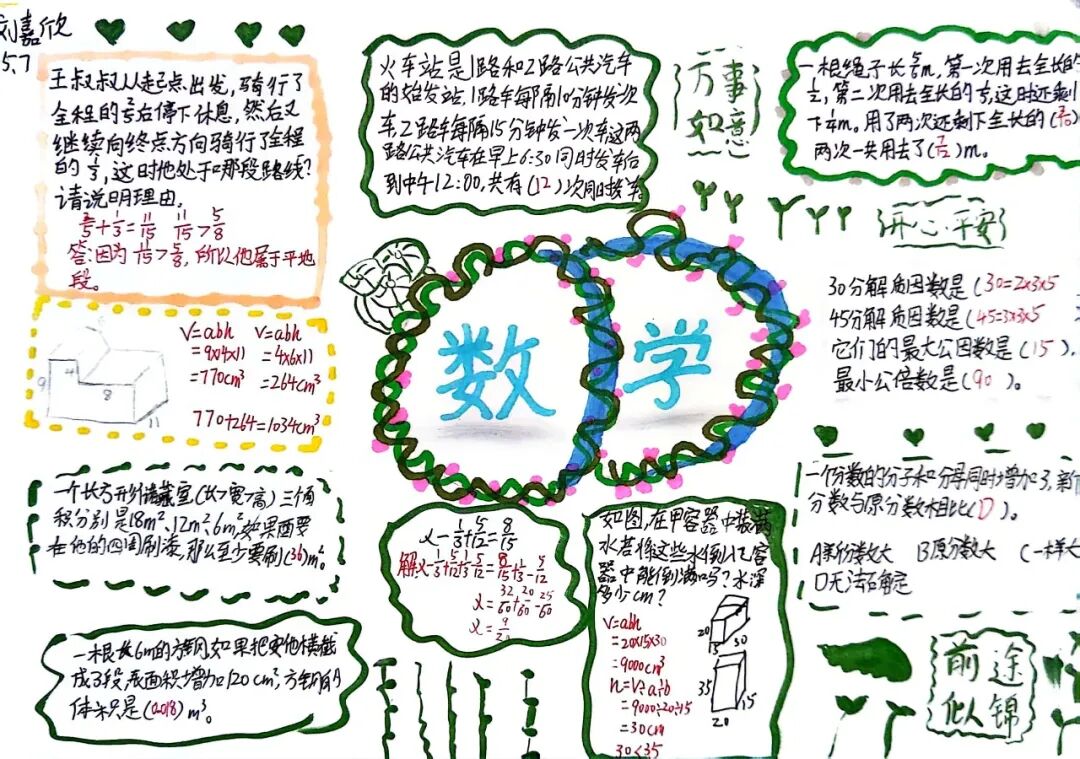 刘嘉欣
5.7
王叔叔从走起点出发,骑行了
全程的3/5后停下休息,然后又
继续向终点方向骑行了全程
的1/3,这时他处于哪段路线?
请说明理由。
+1/3=11/15 11/15>5/8
答:因为11/15>5/8,所以他属于平地
段。
V=abh V=abh
=9x4x11 =4x6x11
=770cm³ =264cm³
770+264=1034cm³
9
4
8
11
一个长方形储藏室(长>宽>高)三个面
积分别是18m²、12m²、6m²,如果要
在他的四周刷漆,那么至少要刷(36)m²。
一根长6m的方钢,如果把它横截
成3段,表面积增加120cm²,方钢的
体积是(0.018)m³。
火车站是1路和2路公共汽车
的始发站,1路车每隔10分钟发一次
车,2路车每隔15分钟发一次车,这两
路公共汽车在早上6:30同时发车后
到中午12:00,共有(12)次同时发车。
数学
x-1/3+5/12=8/15
解x-1/3+5/12+1/3-5/12=8/15+1/3-5/12
x=32/60+20/60-25/60
x=9/20
如图,在甲容器中装满
水,若将这些水倒入乙容
器中能倒满吗?水深
多少cm?
V=abh
=20x15x30
=9000cm³
h=V÷a÷b
=9000÷20÷15
=30cm
30<35
20
15
30
35
15
20
万事
如意
一根绳子长5/6m,第一次用去全长的
1/2,第二次用去全长的1/5,这时还剩
下1/4m。用了两次还剩下全长的(3/10)
两次一共用去了(7/12)m。
开心平安
30分解质因数是(30=2x3x5
45分解质因数是(45=3x3x5
它们的最大公因数是(15),
最小公倍数是(90)。
一个分数的分子和分母同时增加3,新
分数与原分数相比(D)。
A新分数大 B原分数大 C一样大
D无法确定
前途
似锦